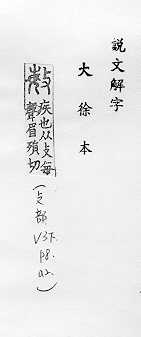 說文解字
大徐本
敏
疾也从攴每
聲眉殞切
(攴部
V3下.
P8.
a2.)